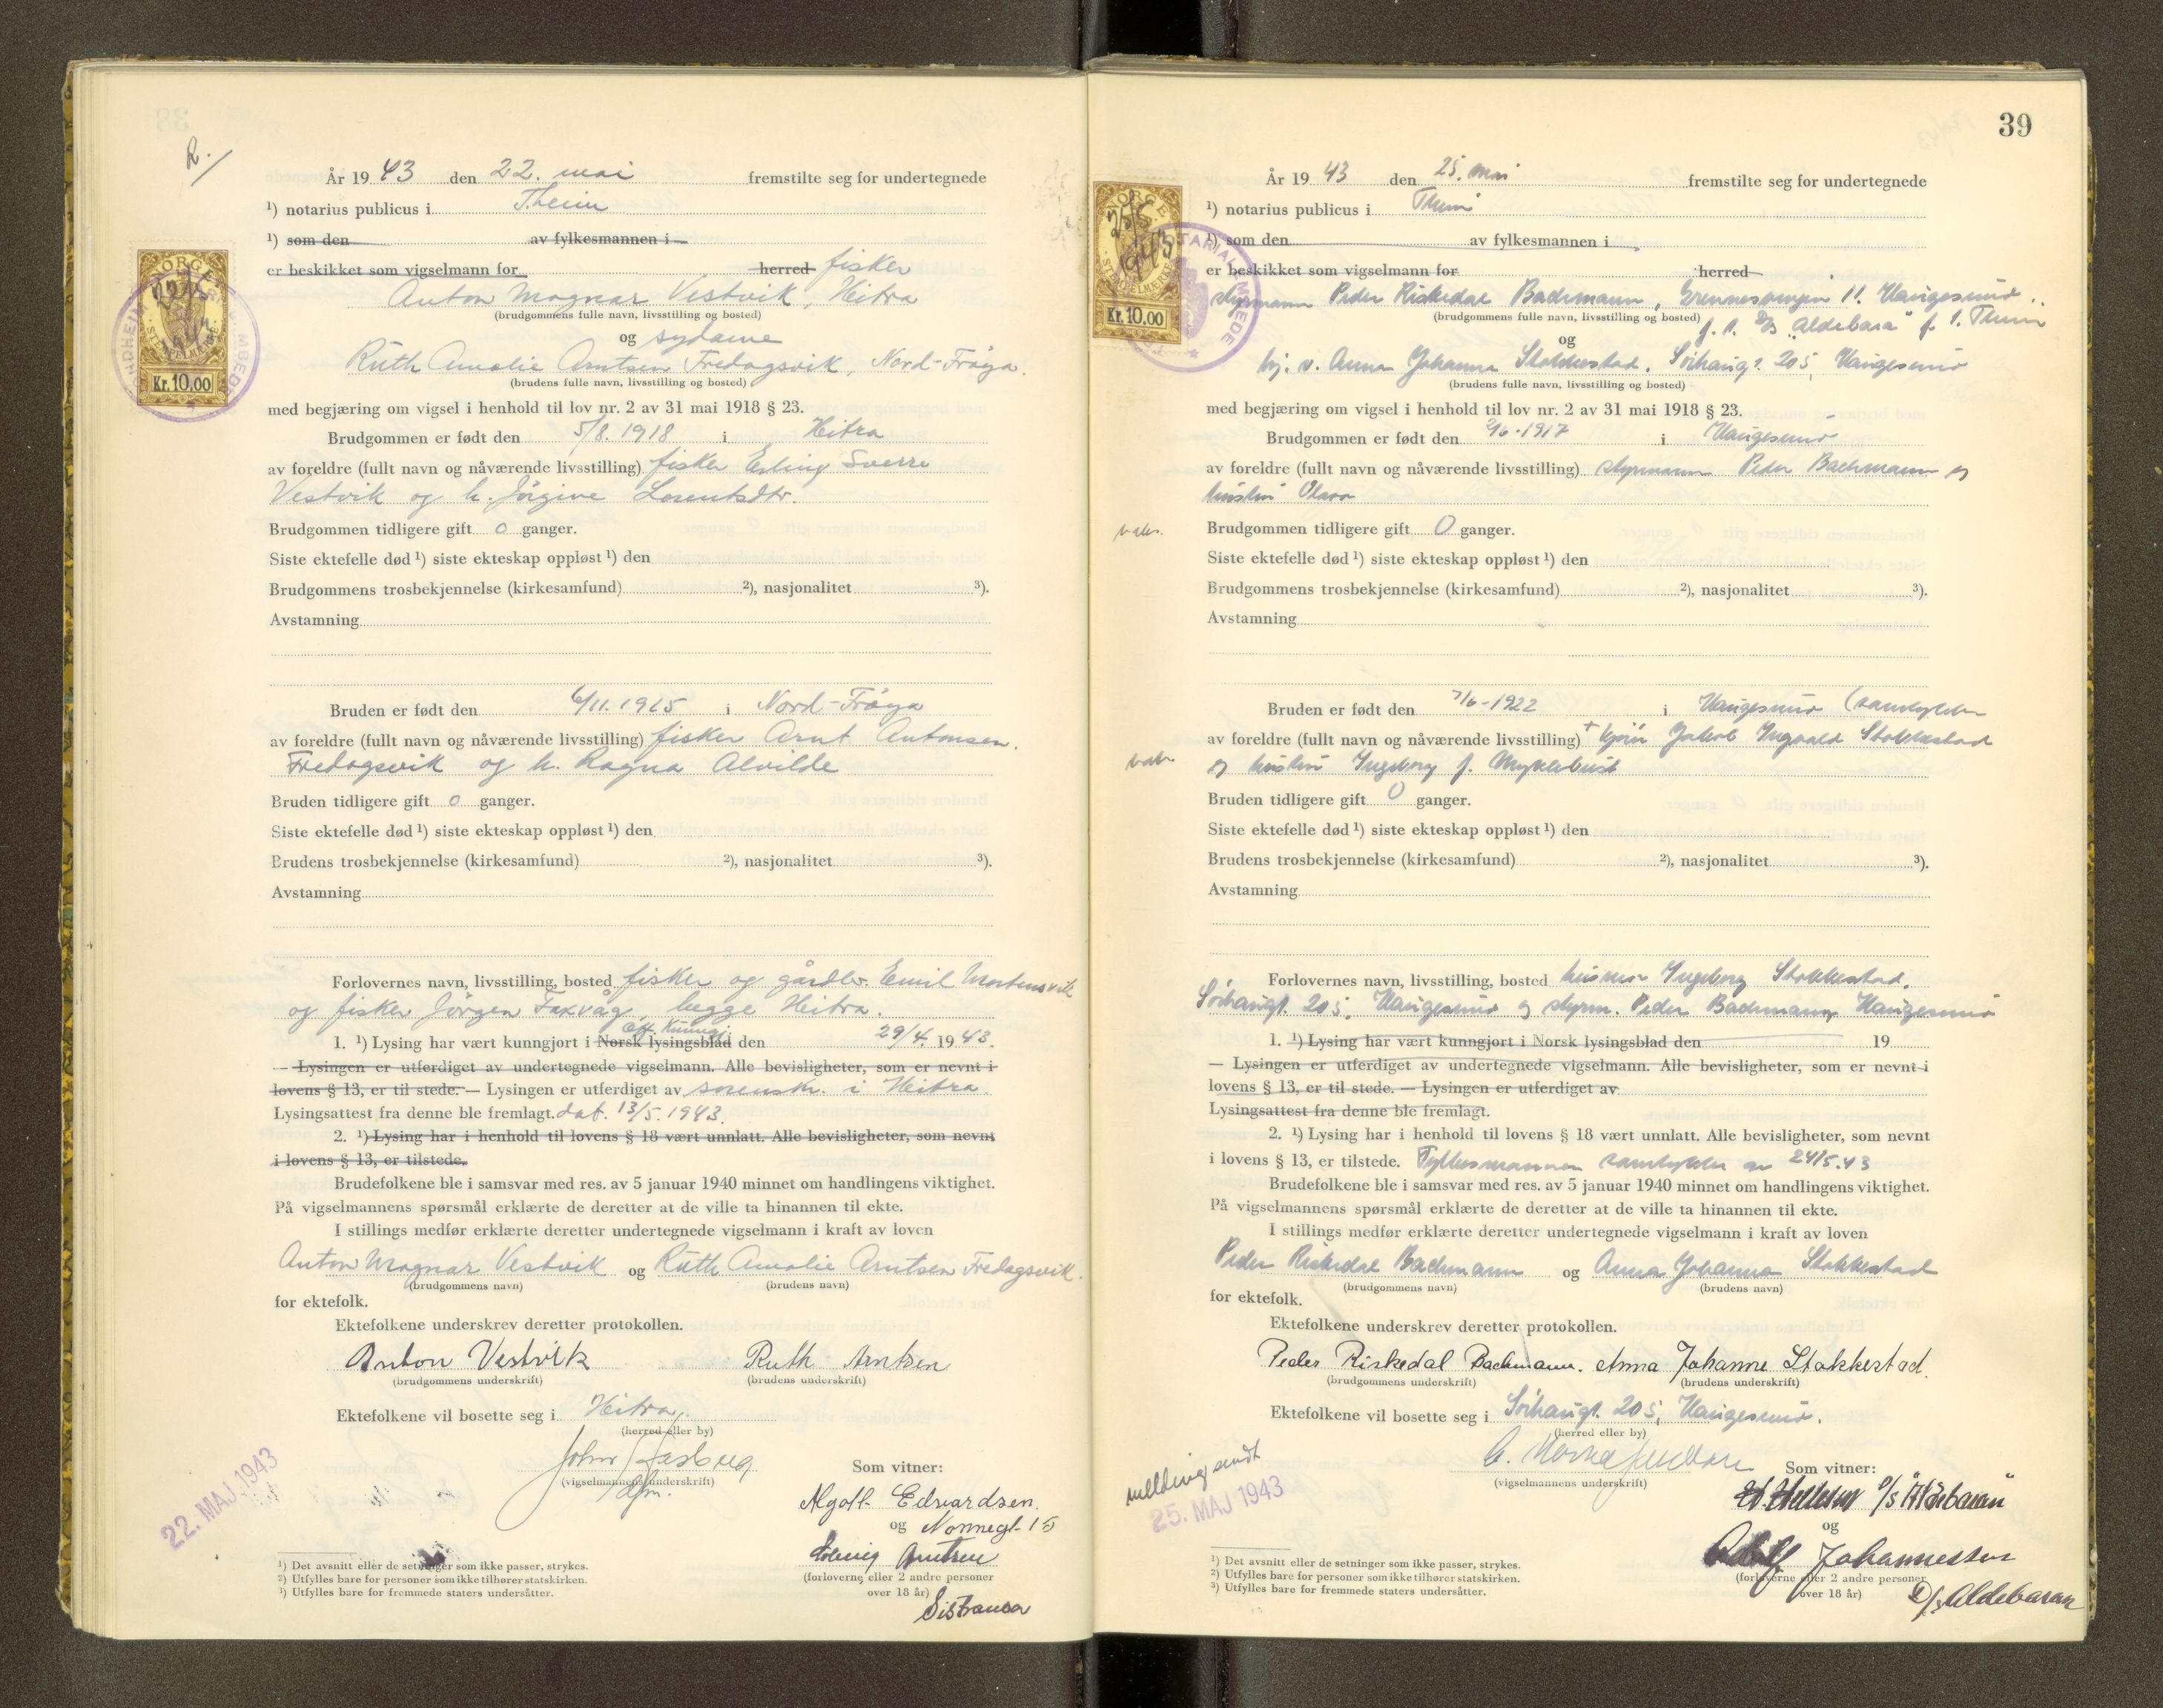 R./
År 1943 den 22. mai fremstilte seg for undertegnede
¹) notarius publicus i T.heim
¹) som den av fylkesmannen i
er beskikket som vigselmann for herred fisker
Anton Magnar Vestvik, Hitra
(brudgommens fulle navn, livsstilling og bosted)
og sydame
Ruth Amalie Arntsen Fredagsvik, Nord-Frøya.
(brudens fulle navn, livsstilling og bosted)
NORGE
STEMPELMERKE
Kr. 10,00
med begjæring om vigsel i henhold til lov nr. 2 av 31 mai 1918 § 23.
Brudgommen er født den 5/8. 1918 i Hitra
av foreldre (fullt navn og nåværende livsstilling) fisker Erling Sverre
Vestvik og h. Jørgine Lorentsdtr.
Brudgommen tidligere gift 0 ganger.
Siste ektefelle død ¹) siste ekteskap oppløst ¹) den
Brudgommens trosbekjennelse (kirkesamfund) ²), nasjonalitet ³).
Avstamning
Bruden er født den 6/11. 1915 i Nord-Frøya
av foreldre (fullt navn og nåværende livsstilling) fisker Arnt Antonsen
Fredagsvik og h. Ragna Alvilde
Bruden tidligere gift 0 ganger.
Siste ektefelle død ¹) siste ekteskap oppløst ¹) den
Brudens trosbekjennelse (kirkesamfund) ²), nasjonalitet ³).
Avstamning
Forlovernes navn, livsstilling, bosted fisker og gårdbr. Emil Mortensvik
og fisker Jørgen Faxvåg, begge Hitra.
Off. Kunngj.
1. ¹) Lysing har vært kunngjort i Norsk lysingsblad den 29/4. 1943.
— Lysingen er utferdiget av undertegnede vigselmann. Alle bevisligheter, som er nevnt i
lovens § 13, er til stede. — Lysingen er utferdiget av sorensk. i Hitra.
Lysingsattest fra denne ble fremlagt. dat. 13/5. 1943.
2. ¹) Lysing har i henhold til lovens § 18 vært unnlatt. Alle bevisligheter, som nevnt
i lovens § 13, er tilstede.
Brudefolkene ble i samsvar med res. av 5 januar 1940 minnet om handlingens viktighet.
På vigselmannens spørsmål erklærte de deretter at de ville ta hinannen til ekte.
I stillings medfør erklærte deretter undertegnede vigselmann i kraft av loven
Anton Magnar Vestvik og Ruth Amalie Arntsen Fredagsvik.
(brudgommens navn) (brudens navn)
for ektefolk.
Ektefolkene underskrev deretter protokollen.
Anton Vestvik Ruth Arntsen
(brudgommens underskrift) (brudens underskrift)
Ektefolkene vil bosette seg i Hitra.
(herred eller by)
(vigselmannens underskrift)
Som vitner:
Algott Edvardsen.
og Nonnegt. 15
Solveig Arntsen
(forloverne eller 2 andre personer
over 18 år)
Sistranda
22. MAJ 1943
¹) Det avsnitt eller de setninger som ikke passer, strykes.
²) Utfylles bare for personer som ikke tilhører statskirken.
³) Utfylles bare for fremmede staters undersåtter.
39
År 1943 den 25. mai fremstilte seg for undertegnede
¹) notarius publicus i Theim
¹) som den av fylkesmannen i
er beskikket som vigselmann for herred
styrmann Peder Riskedal Bachmann, 11. Haugesund
(brudgommens fulle navn, livsstilling og bosted) f. t. D/S "Aldebara" f. t. Theim
og
Anna Johanna Stokkestad. Sørhaugt. 205, Haugesund
(brudens fulle navn, livsstilling og bosted)
NORGE
25/5
1943
STEMPELMERKE
Kr. 10,00
med begjæring om vigsel i henhold til lov nr. 2 av 31 mai 1918 § 23.
Brudgommen er født den 2/6-1917 i Haugesund
av foreldre (fullt navn og nåværende livsstilling) styrmann Peder Bachmann og
hustru Olava
vaks.
Brudgommen tidligere gift 0 ganger.
Siste ektefelle død ¹) siste ekteskap oppløst ¹) den
Brudgommens trosbekjennelse (kirkesamfund) ²), nasjonalitet ³).
Avstamning
Bruden er født den 7/6-1922 i Haugesund (samtykke
av foreldre (fullt navn og nåværende livsstilling) + Jakob Ingvald Stokkestad
og hustru Ingeborg f. Myklebust
Bruden tidligere gift 0 ganger.
Siste ektefelle død ¹) siste ekteskap oppløst ¹) den
Brudens trosbekjennelse (kirkesamfund) ²), nasjonalitet ³).
Avstamning
Forlovernes navn, livsstilling, bosted husmor Ingeborg Stokkestad.
Sørhaugt. 205, Haugesund og styrm. Peder Bachmann Haugesund
1. ¹) Lysing har vært kunngjort i Norsk lysingsblad den 19
— Lysingen er utferdiget av undertegnede vigselmann. Alle bevisligheter, som er nevnt i
lovens § 13, er til stede. — Lysingen er utferdiget av
Lysingsattest fra denne ble fremlagt.
2. ¹) Lysing har i henhold til lovens § 18 vært unnlatt. Alle bevisligheter, som nevnt
i lovens § 13, er tilstede. Fylkesmannen samtykke av 24/5.43
Brudefolkene ble i samsvar med res. av 5 januar 1940 minnet om handlingens viktighet.
På vigselmannens spørsmål erklærte de deretter at de ville ta hinannen til ekte.
I stillings medfør erklærte deretter undertegnede vigselmann i kraft av loven
Peder Riskedal Bachmann og Anna Johanna Stokkestad
(brudgommens navn) (brudens navn)
for ektefolk.
Ektefolkene underskrev deretter protokollen.
Peder Riskedal Bachmann. Anna Johanne Stokkestad.
(brudgommens underskrift) (brudens underskrift)
Ektefolkene vil bosette seg i Sørhaugt. 205, Haugesund.
(herred eller by)
(vigselmannens underskrift)
Som vitner:
D/S "Aldebaran"
og
Adolf Johannessen
(forloverne eller 2 andre personer
over 18 år) D/S Aldebaran
melding sendt
25. MAJ 1943
¹) Det avsnitt eller de setninger som ikke passer, strykes.
²) Utfylles bare for personer som ikke tilhører statskirken.
³) Utfylles bare for fremmede staters undersåtter.